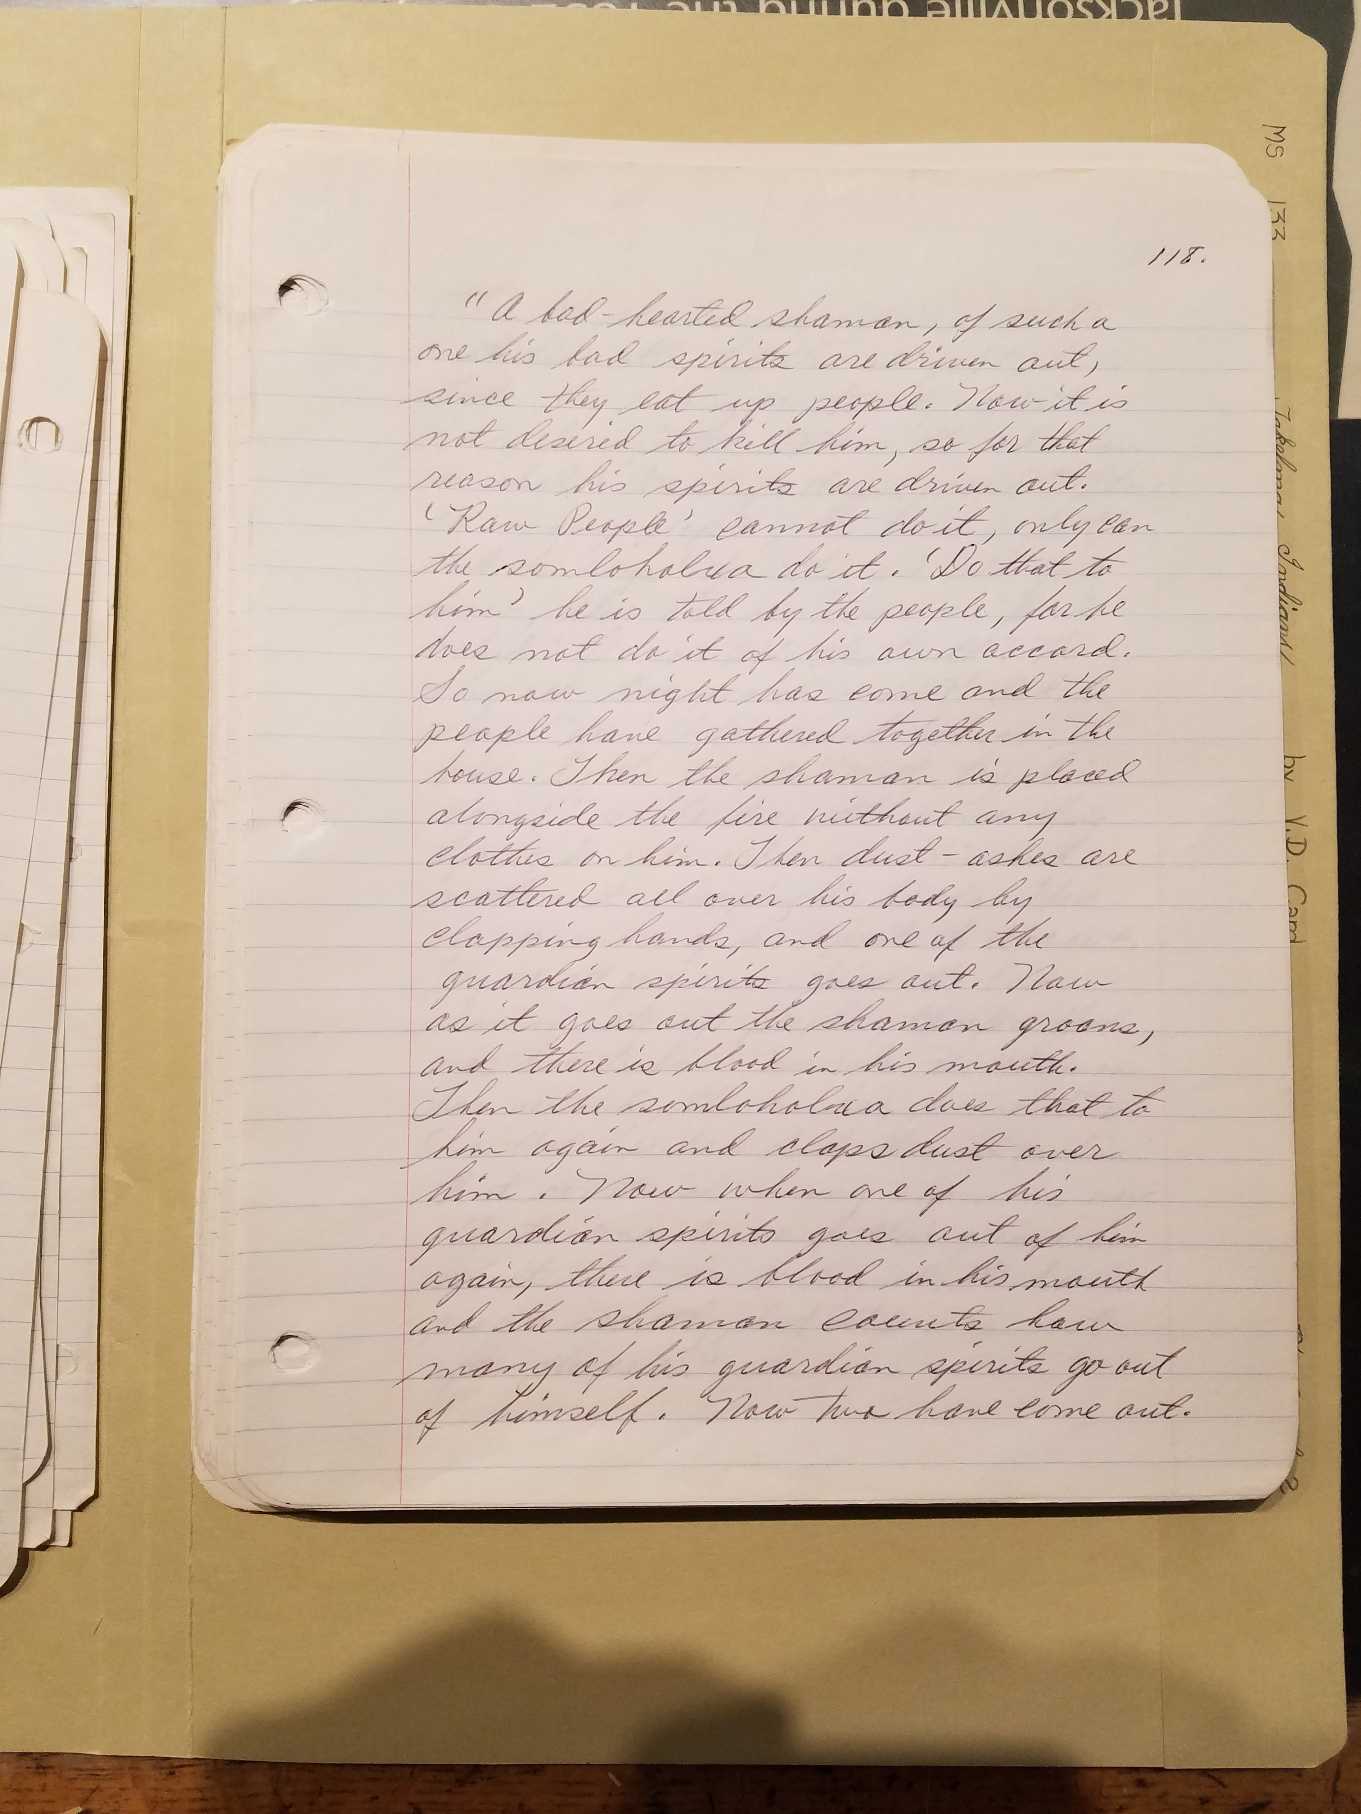 Jacksonville during the 1852
MS 133 Takelma Indians by V.D. Card
118.
"A bad-hearted shaman, of such a
one his bad spirits are driven out,
since they eat up people. Now it is
not desired to kill him, so for that
reason his spirits are driven out.
'Raw People' cannot do it, only can
the somloholxa do it. 'Do that to
him' he is told by the people, for he
does not do it of his own accord.
So now night has come and the
people have gathered together in the
house. Then the shaman is placed
alongside the fire without any
clothes on him. Then dust-ashes are
scattered all over his body by
clapping hands, and one of the
guardian spirits goes out. Now
as it goes out the shaman groans,
and there is blood in his mouth.
Then the somloholxa does that to
him again and claps dust over
him. Now when one of his
guardian spirits goes out of him
again, there is blood in his mouth
and the shaman counts how
many of his guardian spirits go out
of himself. Now two have come out.